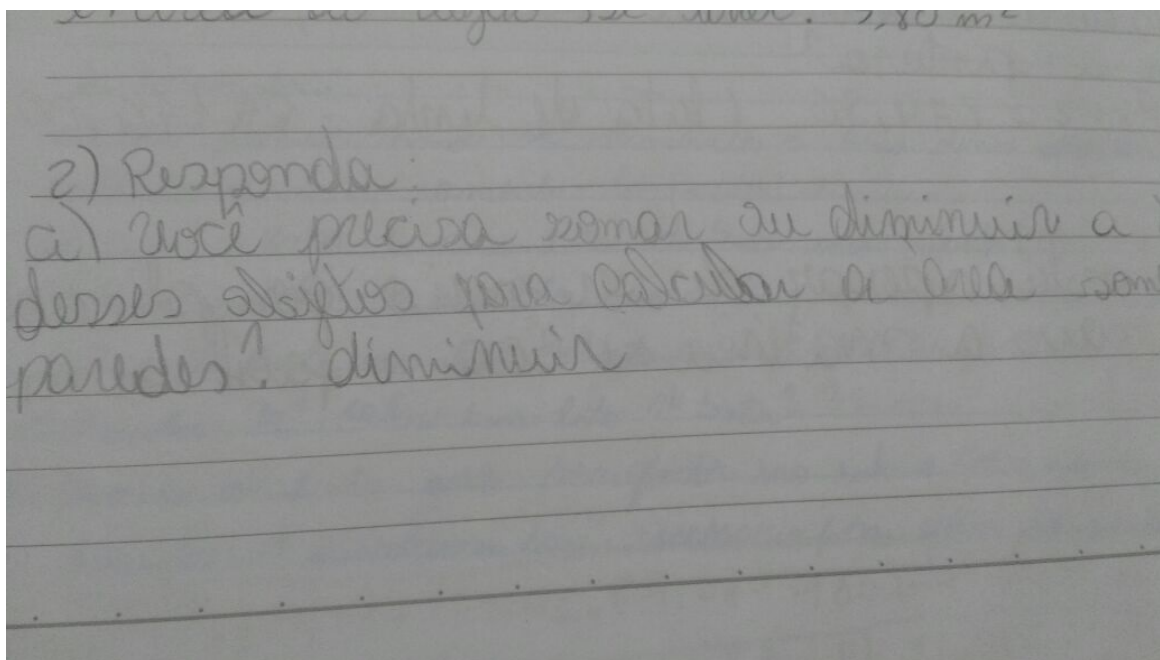 3,80 m²
2) Responda:
a) você precisa somar ou diminuir a
desses objetos para calcular a área som
paredes? diminuir